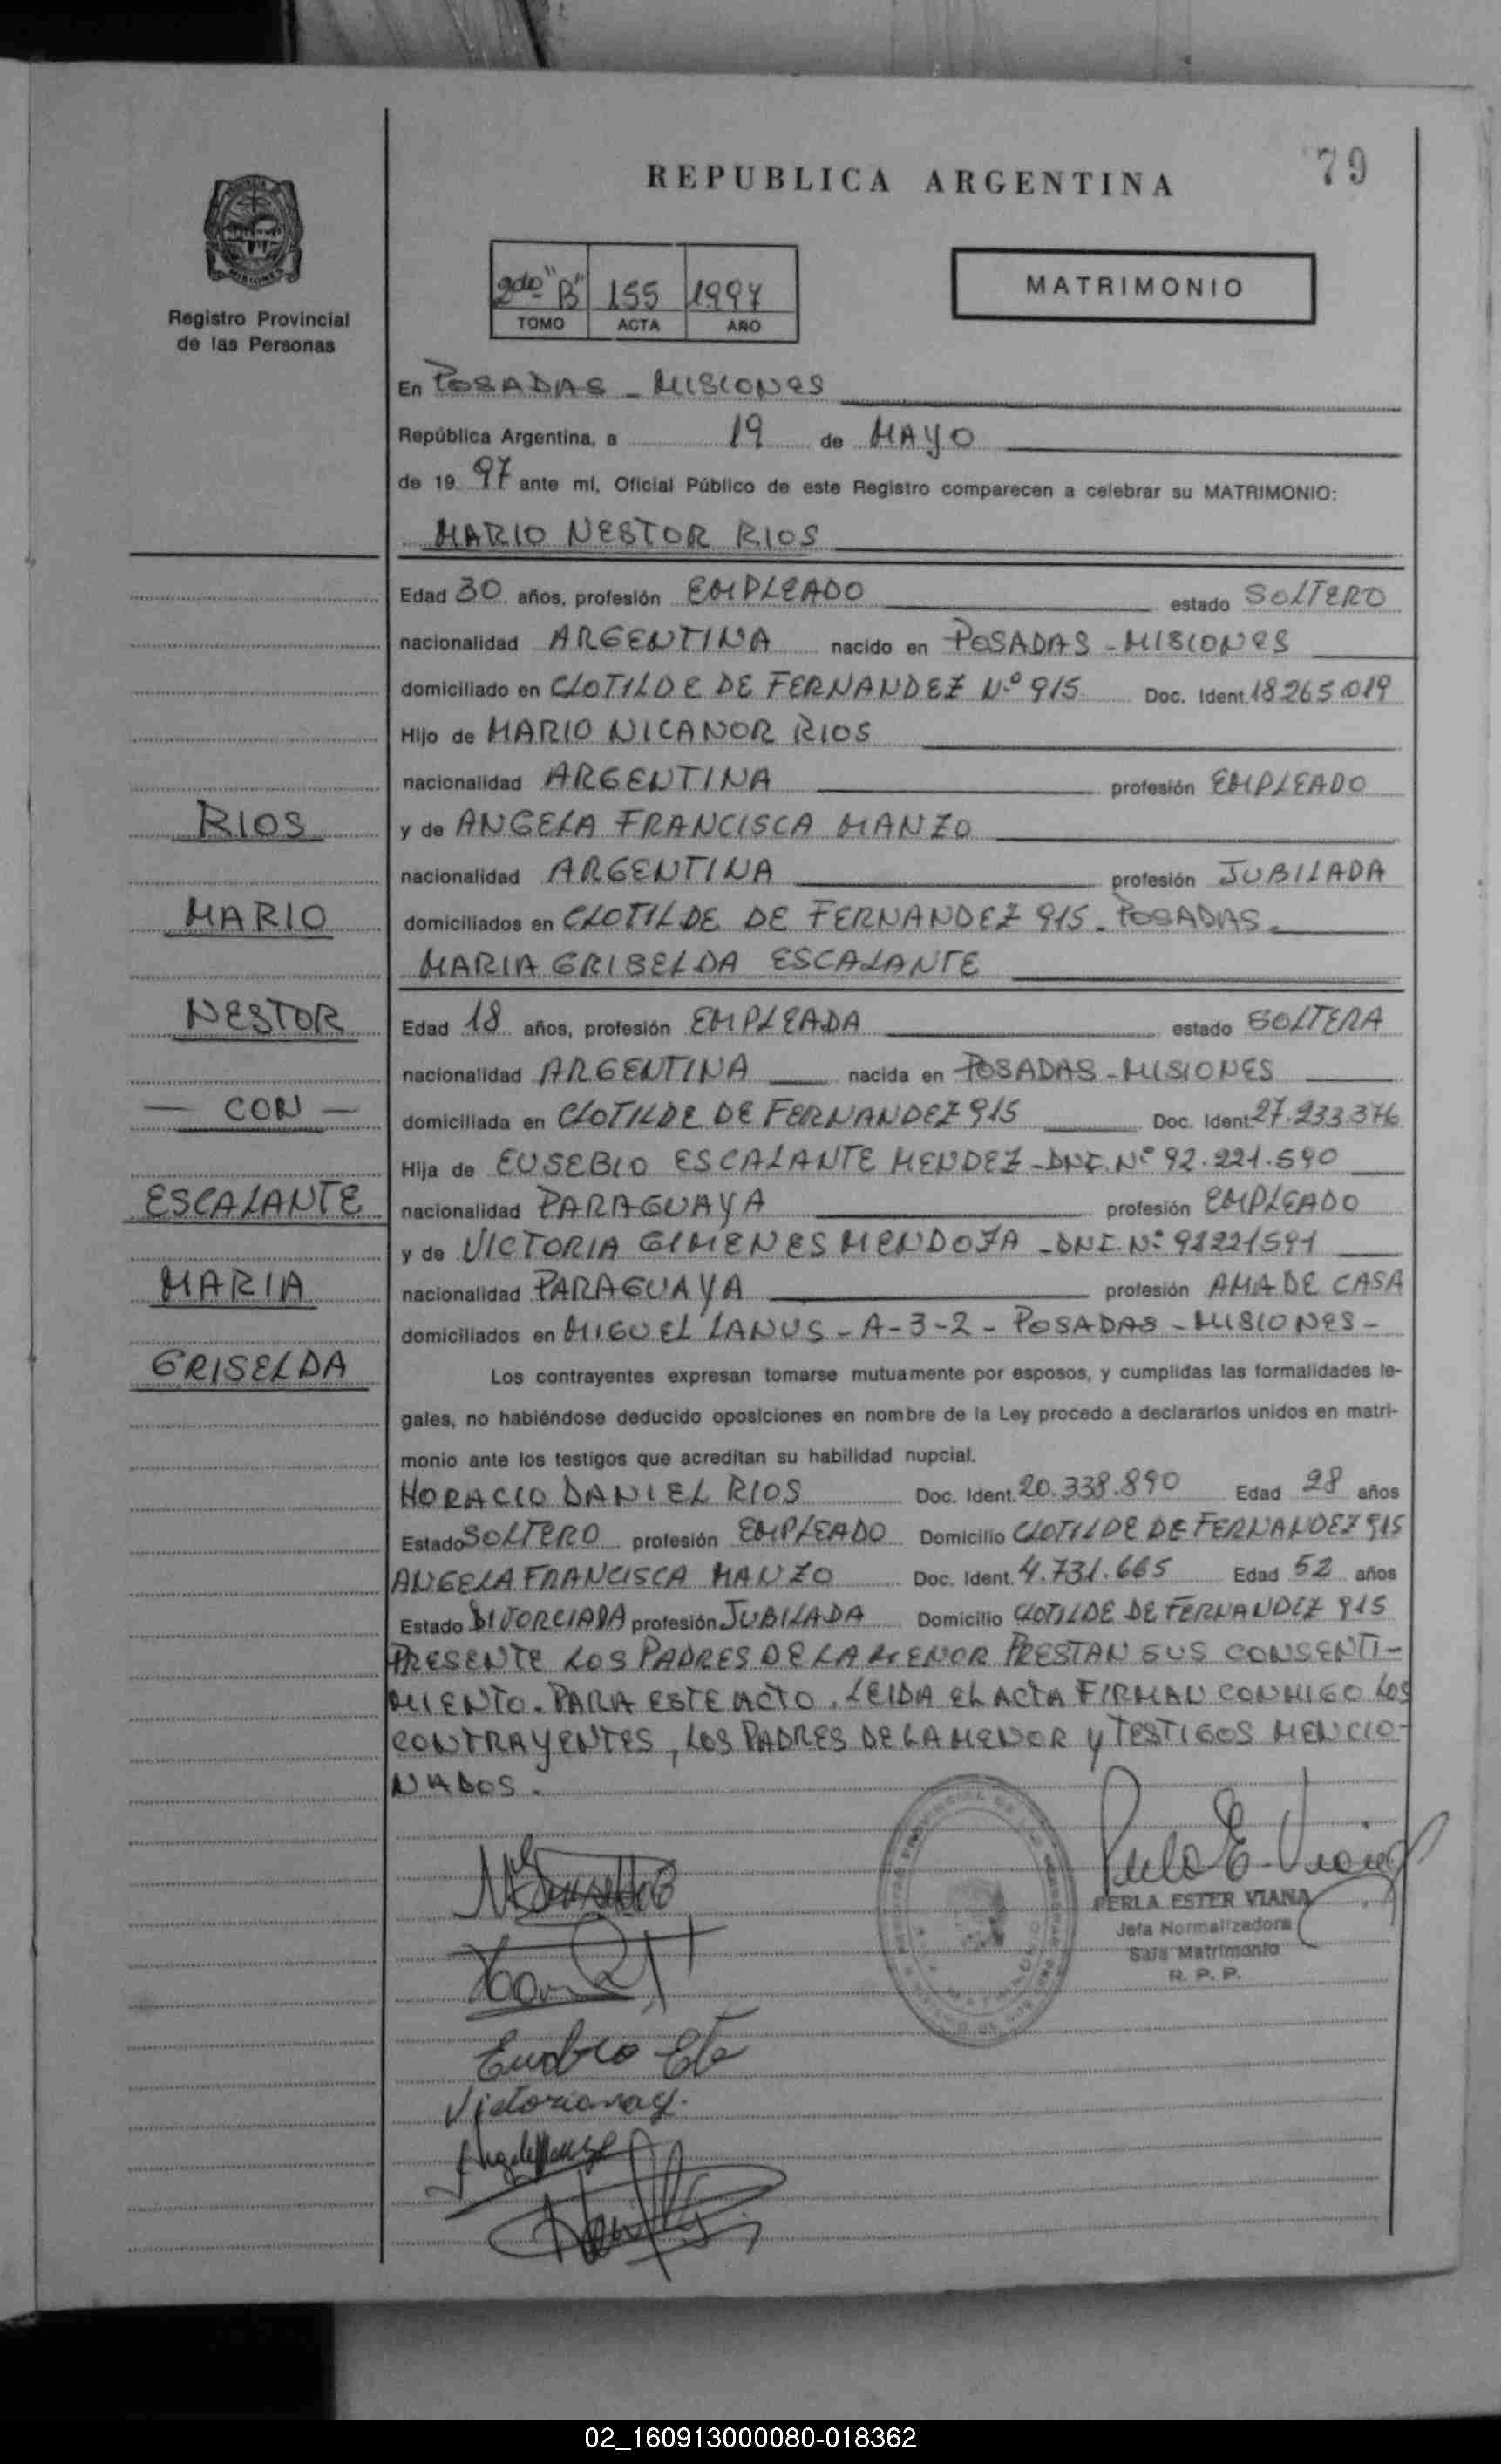 79
REPUBLICA ARGENTINA
2do "B" 155 1997
TOMO ACTA AÑO
MATRIMONIO
Registro Provincial
de las Personas
En POSADAS - MISIONES
República Argentina, a 19 de MAYO
de 19 97 ante mí, Oficial Público de este Registro comparecen a celebrar su MATRIMONIO:
MARIO NESTOR RIOS
Edad 30 años, profesión EMPLEADO estado SOLTERO
nacionalidad ARGENTINA nacido en POSADAS - MISIONES
domiciliado en CLOTILDE DE FERNANDEZ Nº 915 Doc. Ident. 18265019
Hijo de MARIO NICANOR RIOS
nacionalidad ARGENTINA profesión EMPLEADO
RIOS
y de ANGELA FRANCISCA MANZO
nacionalidad ARGENTINA profesión JUBILADA
MARIO
domiciliados en CLOTILDE DE FERNANDEZ 915 - POSADAS -
MARIA GRISELDA ESCALANTE
NESTOR
Edad 18 años, profesión EMPLEADA estado SOLTERA
nacionalidad ARGENTINA nacida en POSADAS - MISIONES
— CON —
domiciliada en CLOTILDE DE FERNANDEZ 915 Doc. Ident. 27.233.376
Hija de EUSEBIO ESCALANTE MENDEZ - DNI. Nº 92.221.590
ESCALANTE
nacionalidad PARAGUAYA profesión EMPLEADO
y de VICTORIA GIMENES MENDOZA - DNI. Nº 92221591
MARIA
nacionalidad PARAGUAYA profesión AMA DE CASA
domiciliados en MIGUEL LANUS - A-3-2 - POSADAS - MISIONES -
GRISELDA
Los contrayentes expresan tomarse mutuamente por esposos, y cumplidas las formalidades le-
gales, no habiéndose deducido oposiciones en nombre de la Ley procedo a declararlos unidos en matri-
monio ante los testigos que acreditan su habilidad nupcial.
HORACIO DANIEL RIOS Doc. Ident. 20.338.890 Edad 28 años
Estado SOLTERO profesión EMPLEADO Domicilio CLOTILDE DE FERNANDEZ 915
ANGELA FRANCISCA MANZO Doc. Ident. 4.731.665 Edad 52 años
Estado DIVORCIADA profesión JUBILADA Domicilio CLOTILDE DE FERNANDEZ 915
PRESENTE LOS PADRES DE LA MENOR PRESTAN SUS CONSENTI-
MIENTO. PARA ESTE ACTO. LEIDA EL ACTA FIRMAN CONMIGO LOS
CONTRAYENTES, LOS PADRES DE LA MENOR Y TESTIGOS MENCIO-
NADOS.
Perla E. Viana
PERLA ESTER VIANA
Jefa Normalizadora
Sala Matrimonio
R. P. P.
02_160913000080-018362